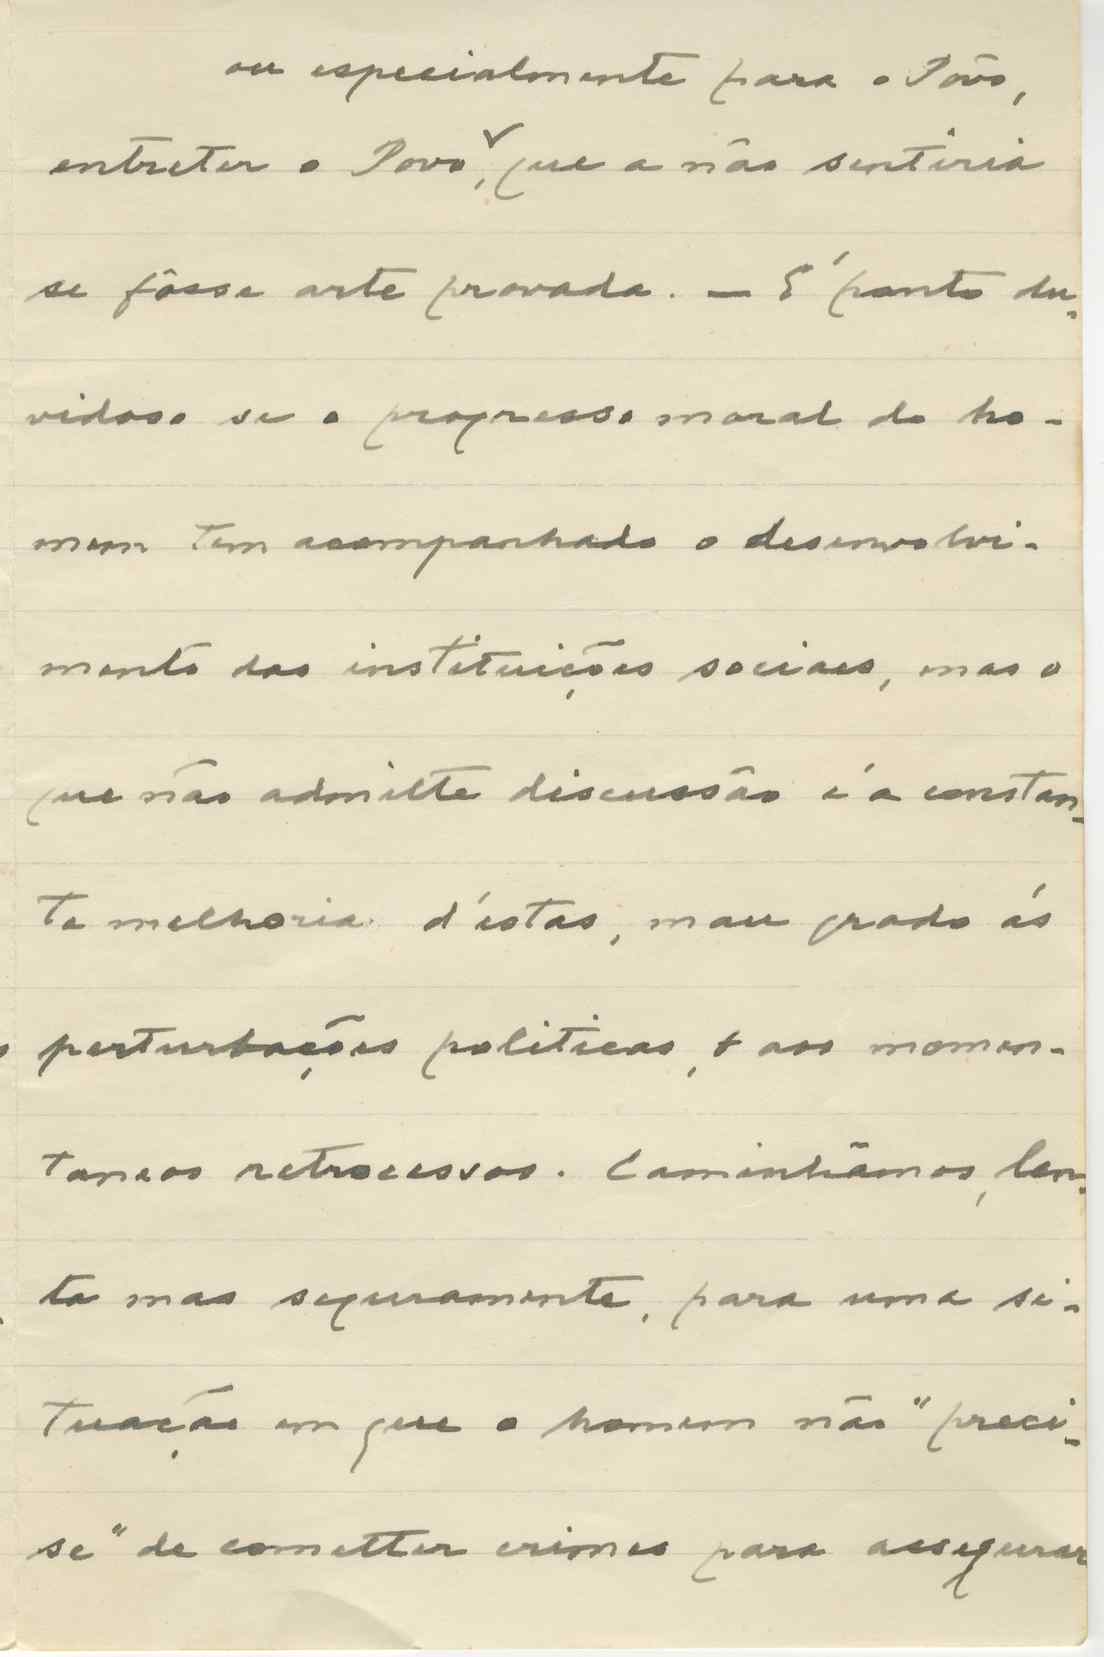 ou especialmente para o Pôvo,
entreter o Povo, que a não sentiria
se fôsse arte provada. — É ponto du-
vidoso se o progresso moral do ho-
mem tem acompanhado o desenvolvi-
mento das instituições sociaes, mas o
que não admitte discussão é a constan-
te melhoria d'éstas, mau grado ás
perturbações politicas, + aos momen-
taneos retrocessos. Caminhâmos, len-
ta mas seguramente, para uma si-
tuação em que o homem não "preci-
se" de cometter crimes para assegurar